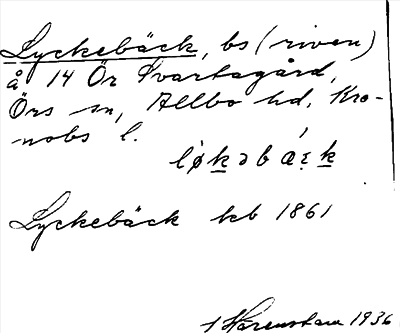 Lyckebäck, bs (riven)
å 14 Ör Svartagård,
Örs sn, Allbo hd, Kro-
nobs l.
lǿk̲ɔbǽk̲
Lyckebäck kb 1861
1936